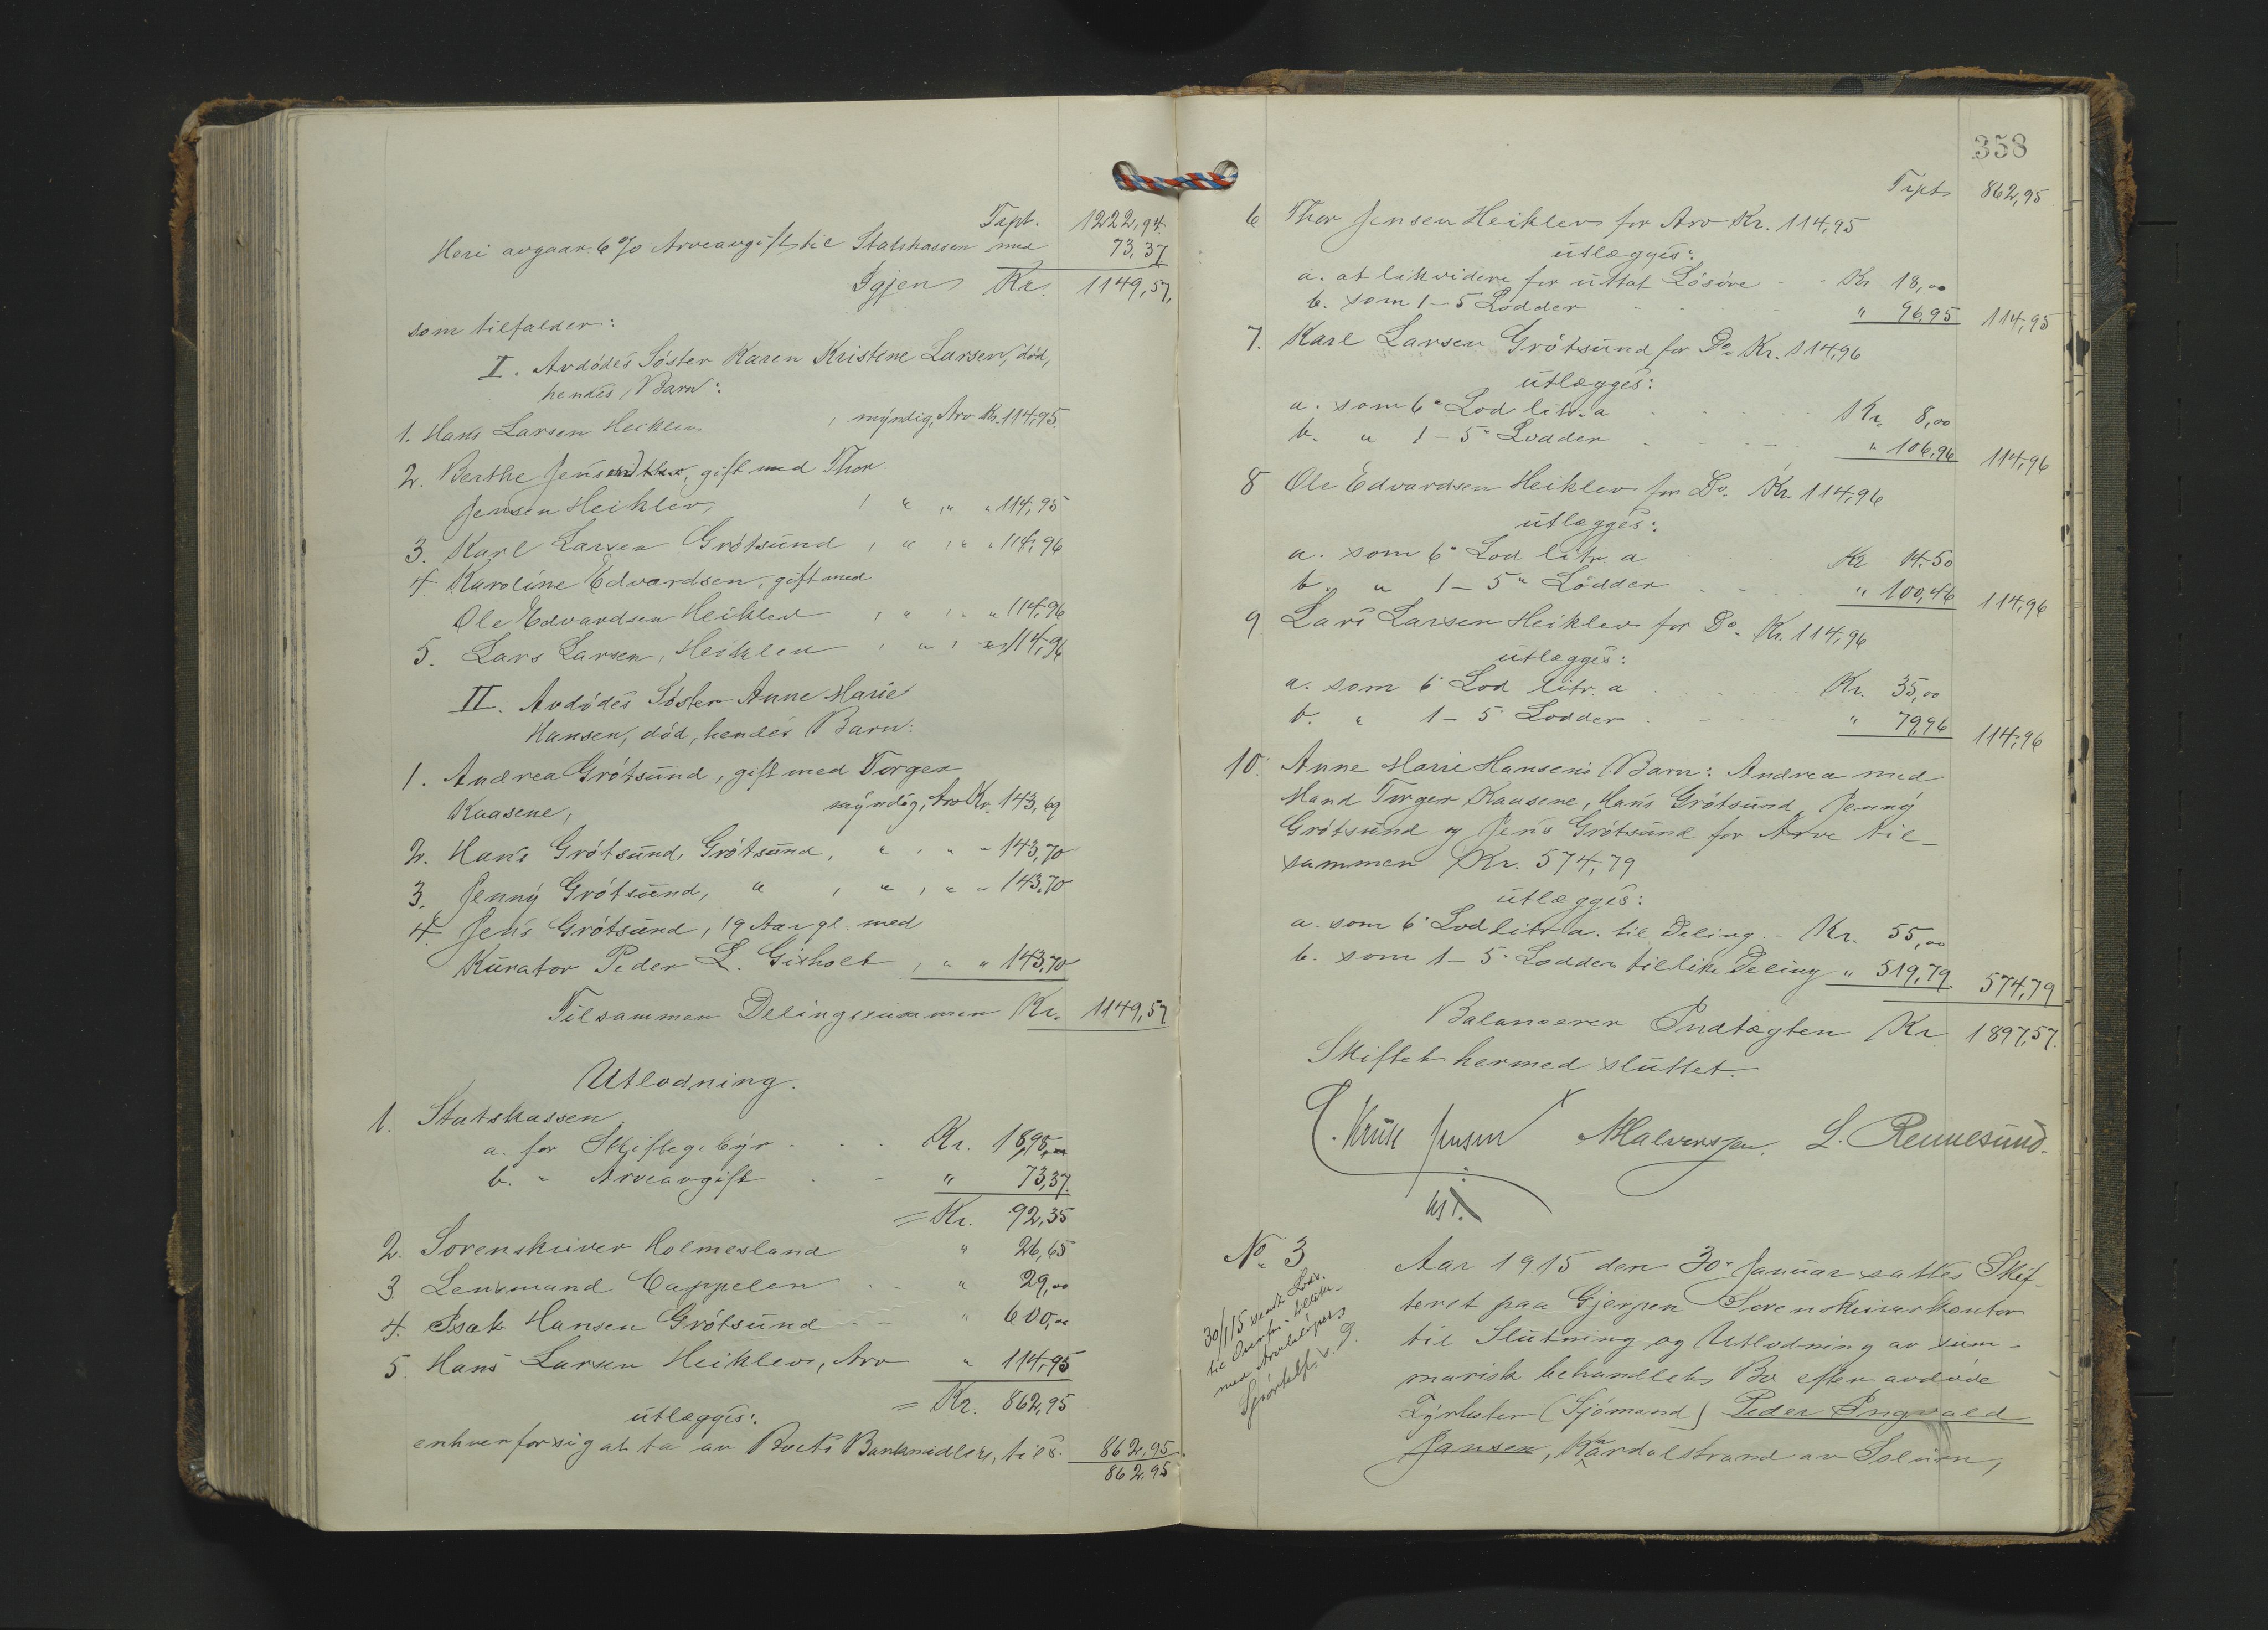 Trpt. 1222,94.
Heri avgaar 6 % Arveavgift til Statskassen med 73,37
Igjen Kr. 1149,57,
som tilfalder:
I. Avdødes Søster Karen Kristine Larsen, død,
hendes Barn:
1. Hans Larsen Heiklev, myndig, Arv Kr. 114,95.
2. Berthe Jensen, gift med Thor
Jensen Heiklev, " " " 114,95
3. Karl Larsen Grótsund, " " " 114,96
4 Karoline Edvardsen, gift med
Ole Edvardsen Heiklev, " " " 114,96
5. Lars Larsen, Heiklev, " " 114,96
II. Avdødes Søster Anne Marie
Hansen, død, hendes Barn:
1. Andrea Grótsund, gift med Torger
Kaasene, myndig, Arv Kr. 143,69
2. Hans Grótsund, Grótsund, " " - 143,70
3. Jenny Grótsund, " , " , " " 143,70
4. Jens Grótsund, 19 Aar gl. med
Kurator Peder L. Gisholt, " " 143,70
Tilsammen Delingssummen Kr. 1149,57
Utlodning.
1. Statskassen
a. for Skiftegebyr - - - Kr. 18,98
b. " Arveavgift - - " 73,37.
= Kr. 92,35
2. Sorenskriver Holmesland " 26,65
3. Lensmand Cappelen - - " 29,00
4. Isak Hansen Grótsund - - " 600,00
5. Hans Larsen Heiklev, Arv " 114,95
= Kr. 862,95
utlægges:
enhver for sig at ta av Boets Bankmidler, tils. 862,95
862,95
358
Trpt 862,95
6 Thor Jensen Heiklev for Arv Kr. 114,95
utlægges:
a. at likvidere for uttat Løsøre - - Kr 18,00
b. som 1-5 Lodder - - - - " 96,95 114,95
7. Karl Larsen Grótsund for Do Kr. 114,96
utlægges:
a. som 6" Lod litr. a - - - Kr. 8,00
b. " 1-5" Lodder - - - - " 106,96 114,96
8 Ole Edvardsen Heiklev for Do. Kr. 114,96
utlægges:
a. som 6" Lod litr. a Kr 14.50
b. " 1-5" Lodder - - - " 100,46 114,96
9 Lars Larsen Heiklev for Do. Kr. 114,96
utlægges:
a. som 6" Lod litr. a - - - Kr. 35,00
b. " 1-5 Lodder - - - " 79,96 114,96
10. Anne Marie Hansens Barn: Andrea med
Mand Torger Kaasene, Hans Grótsund, Jenny
Grótsund og Jens Grótsund for Arve til-
sammen Kr. 574,79
utlægges:
a. som 6" Lod litr a. til Deling - Kr. 55,00
b. som 1-5" Lodder til like Deling " 519,79. 574,79
Balancerer Indtægten Kr 1897,57.
Skiftet hermed sluttet.
Jensen L. Rennesund.
No. 3
30/1 15 sendt
til
med Arvebeløpets
Aar 1915 den 30" Januar sattes Skif-
teret paa Gjerpen Sorenskriverkontor
til Slutning og Utlodning av sum-
marisk behandlet Bo efter avdøde
Fyrbøter (Sjómand) Peder Ingvald
Jansen, av Solum,